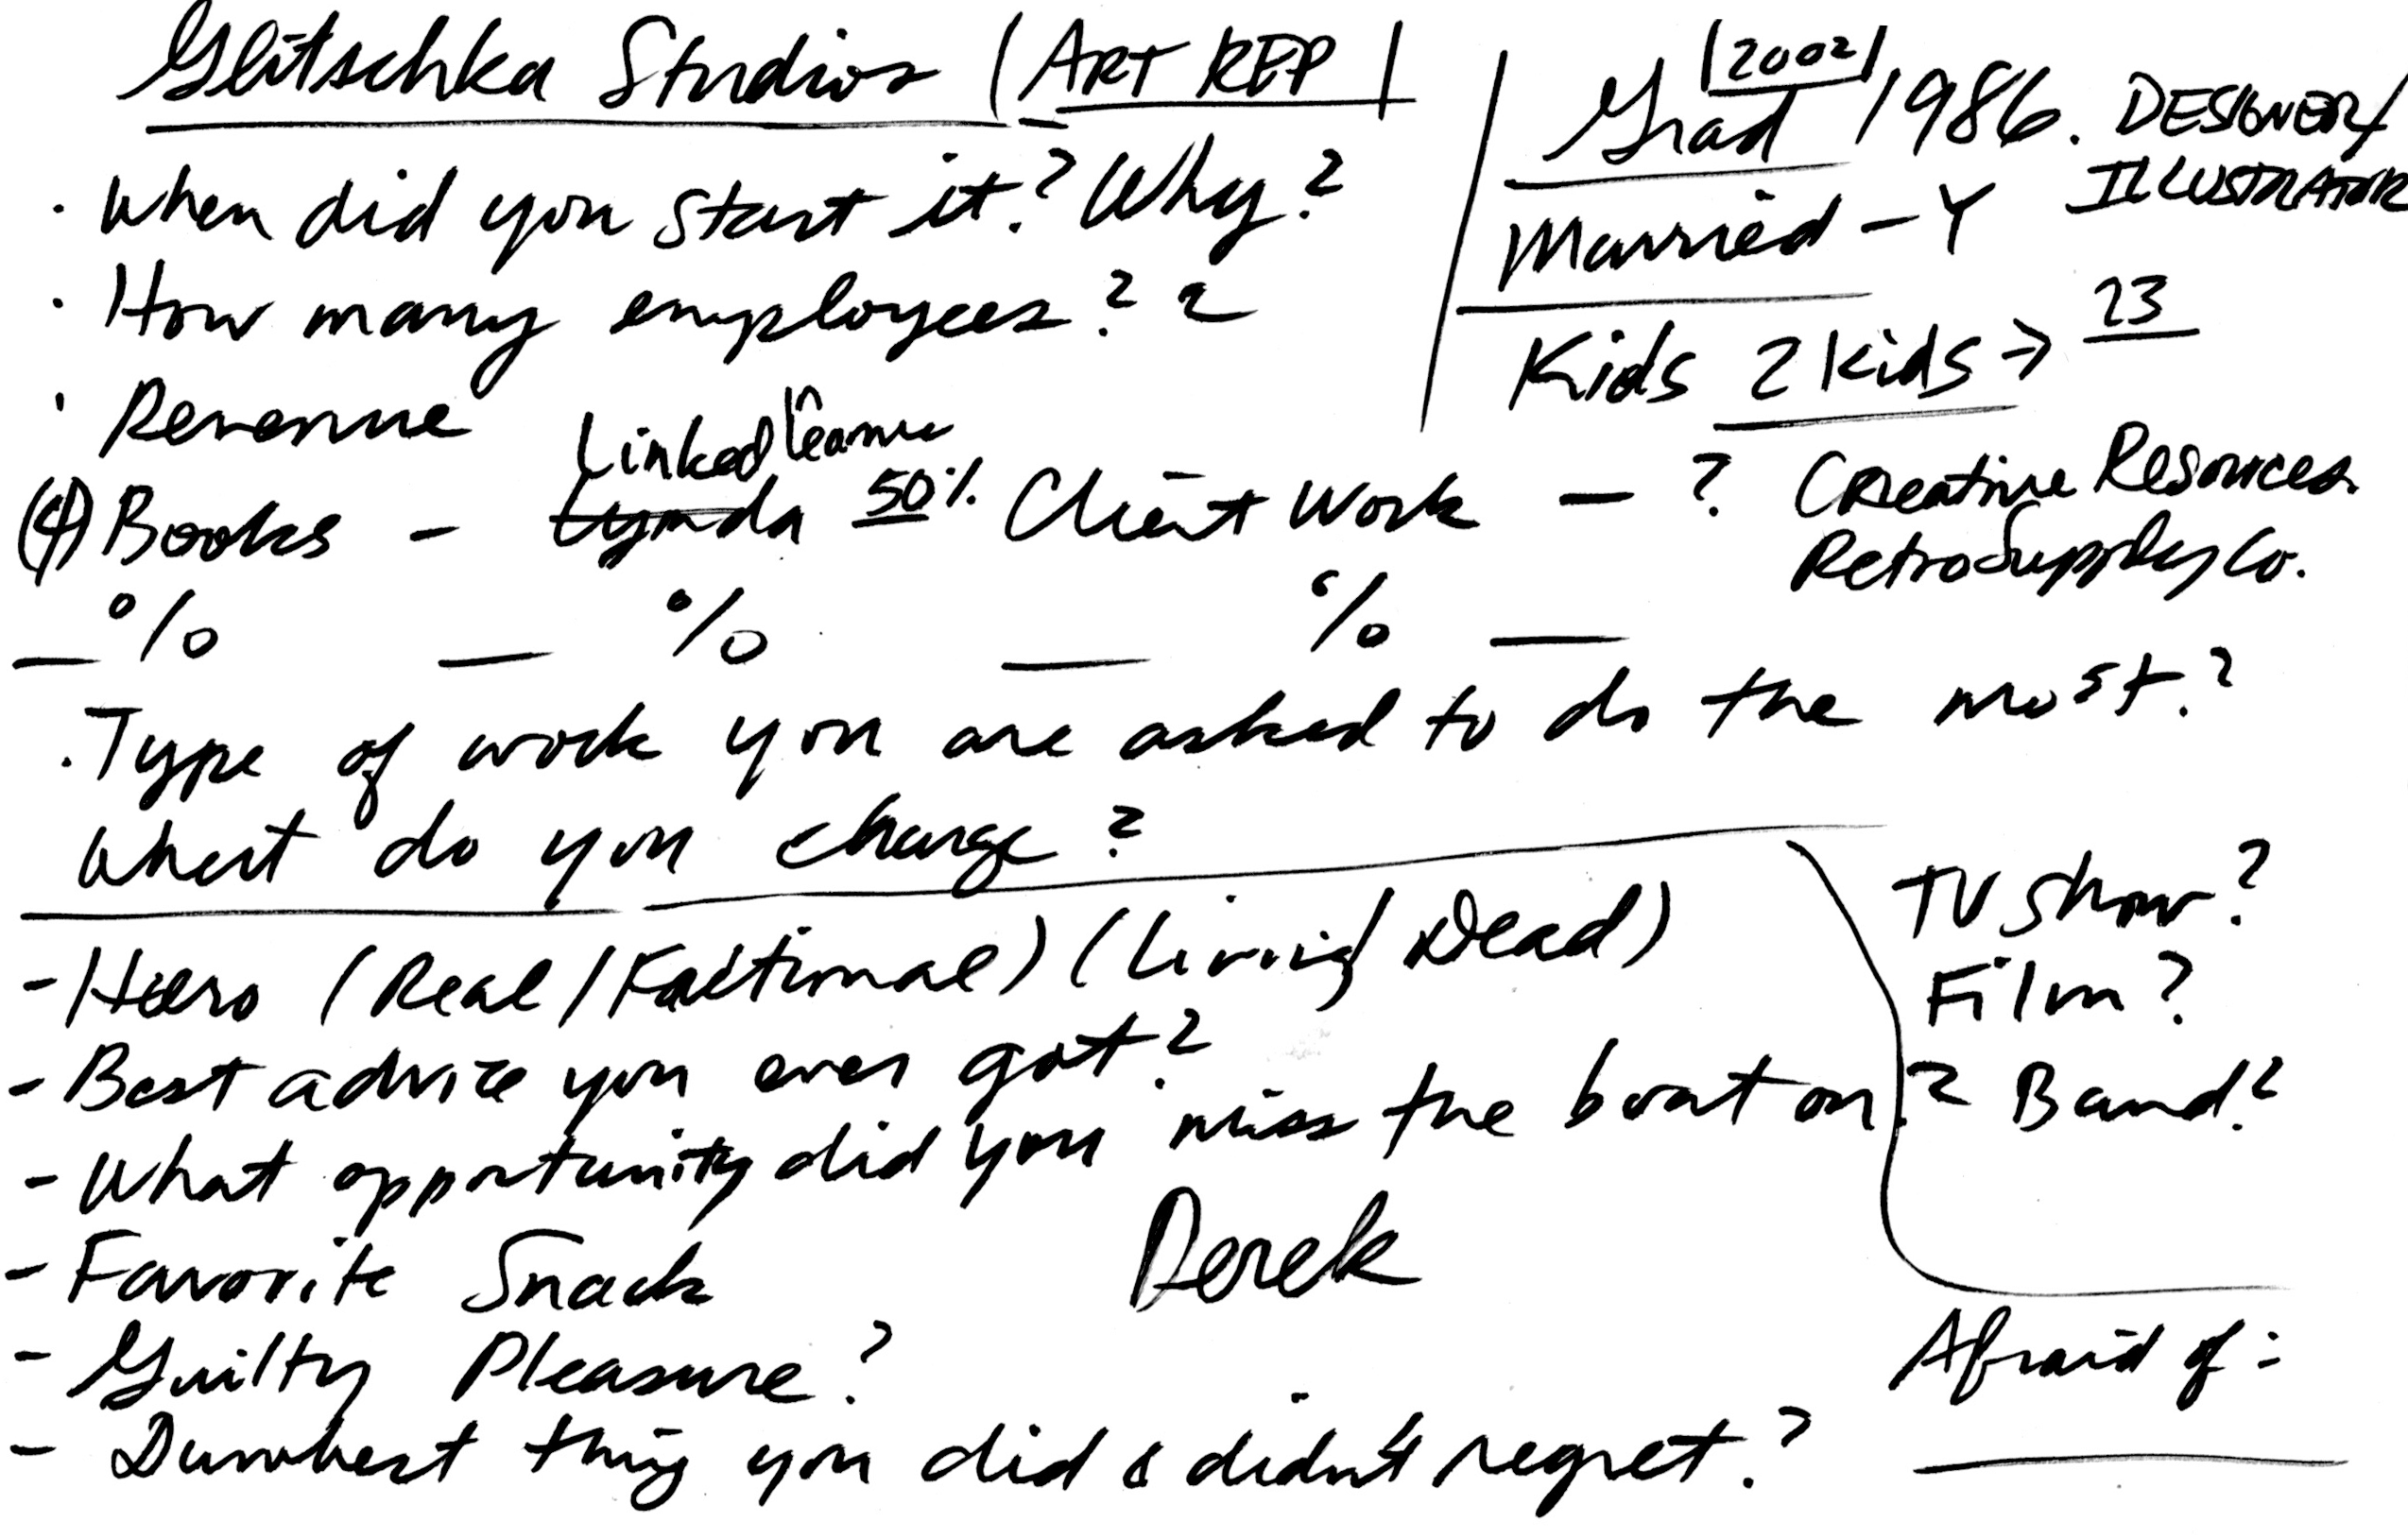 Glitschka Studios (ART REP)
· When did you start it? Why?
· How many employees? 2
· Revenue
(4) Books - Lynda 50% Client Work - ?
LinkedIn Learning
_% _% _% _
· Type of work you are asked to do the most?
What do you charge?
|2002|
Grad 1986. DESIGNER/
ILLUSTRATOR
Married - Y
Kids 2 kids → 23
Creative Resources
RetroSupply Co.
- Hero (Real/Factional) (Living/Dead)
- Best advice you ever got?
- What opportunity did you miss the boat on?
- Favorite Snack
- Guilty Pleasure?
- Dumbest thing you did & didn't regret?
Derek
TV Show?
Film?
? Band?
Afraid of: